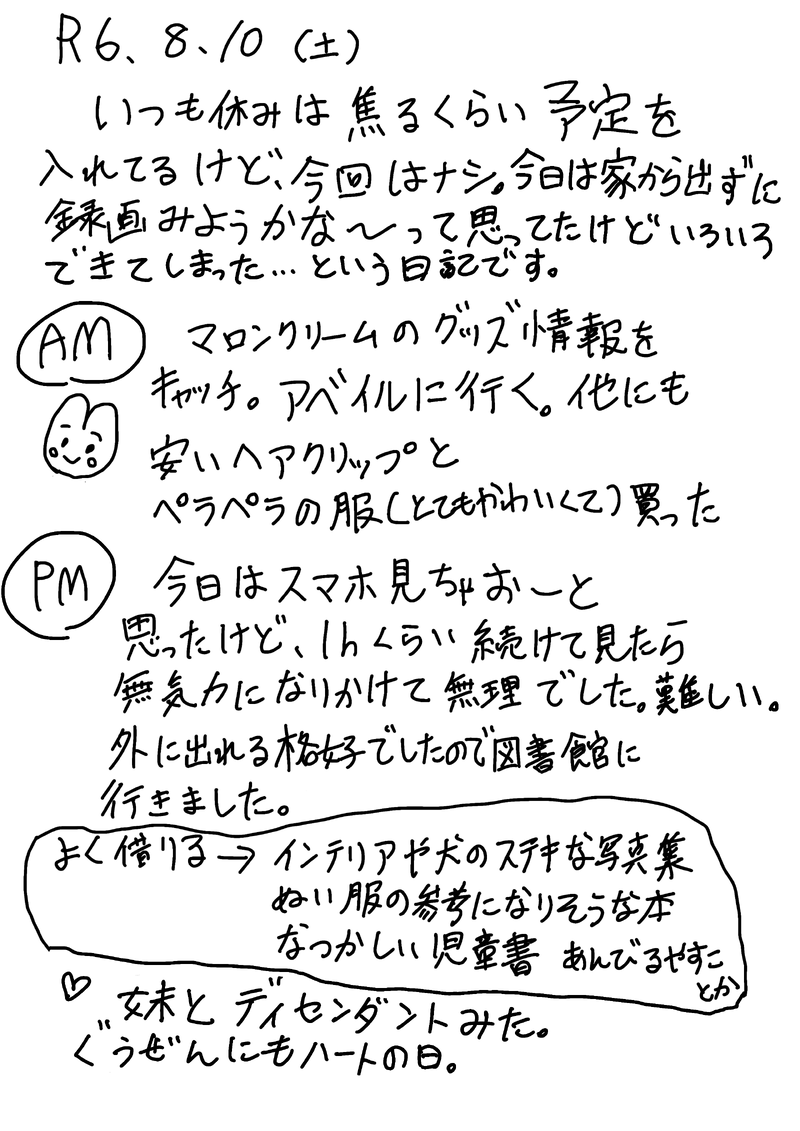 R6、8、10 (土)
いつも休みは焦るくらい予定を
入れてるけど、今回はナシ。今日は家から出ずに
録画みようかな〜って思ってたけどいろいろ
できてしまった…という日記です。
AM マロンクリームのグッズ情報を
キャッチ。アベイルに行く。他にも
安いヘアクリップと
ペラペラの服(とてもかわいくて)買った
PM 今日はスマホ見ちゃおーと
思ったけど、1hくらい続けて見たら
無気力になりかけて無理でした。難しい。
外に出れる格好でしたので図書館に
行きました。
よく借りる→インテリアや犬のステキな写真集
ぬい服の参考になりそうな本
なつかしい児童書 あんびるやすこ
とか
♡ 妹とディセンダントみた。
ぐうぜんにもハートの日。